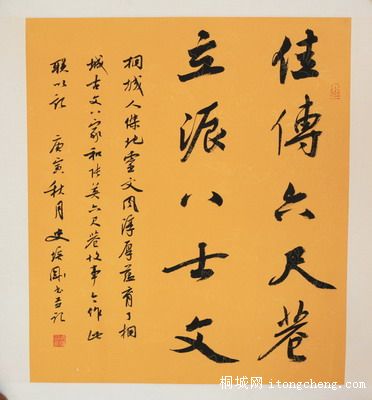 佳傳六尺巷
立派八士文
桐城人傑地靈文風淳厚蘊育了桐
城古文八家和佳美六尺巷故事今作此
聯以記 庚寅秋月 史 書並記
桐城网 itongcheng.com